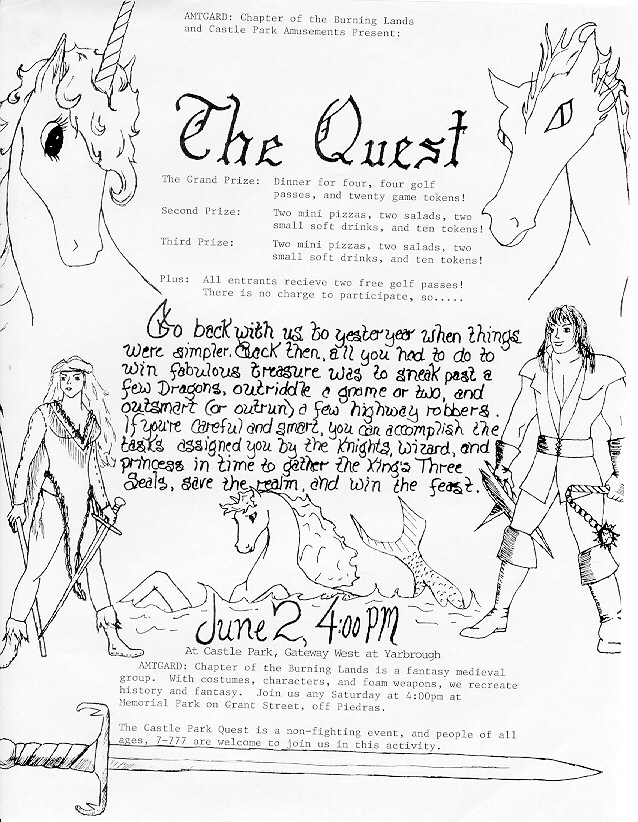 AMTGARD: Chapter of the Burning Lands
and Castle Park Amusements Present:
The Quest
The Grand Prize: Dinner for four, four golf
passes, and twenty game tokens!
Second Prize: Two mini pizzas, two salads, two
small soft drinks, and ten tokens!
Third Prize: Two mini pizzas, two salads, two
small soft drinks, and ten tokens!
Plus: All entrants recieve two free golf passes!
There is no charge to participate, so.....
Go back with us to yesteryear when things
were simpler. Back then, all you had to do to
win fabulous treasure was to sneak past a
few Dragons, outriddle a gnome or two, and
outsmart (or outrun) a few highway robbers.
If you're careful and smart, you can accomplish the
tasks assigned you by the Knights, Wizard, and
princess in time to gather the King's Three
Seals, save the realm, and win the feast.
June 2, 4:00 PM
At Castle Park, Gateway West at Yarbrough
AMTGARD: Chapter of the Burning Lands is a fantasy medieval
group. With costumes, characters, and foam weapons, we recreate
history and fantasy. Join us any Saturday at 4:00pm at
Memorial Park on Grant Street, off Piedras.
The Castle Park Quest is a non-fighting event, and people of all
ages, 7-777 are welcome to join us in this activity.